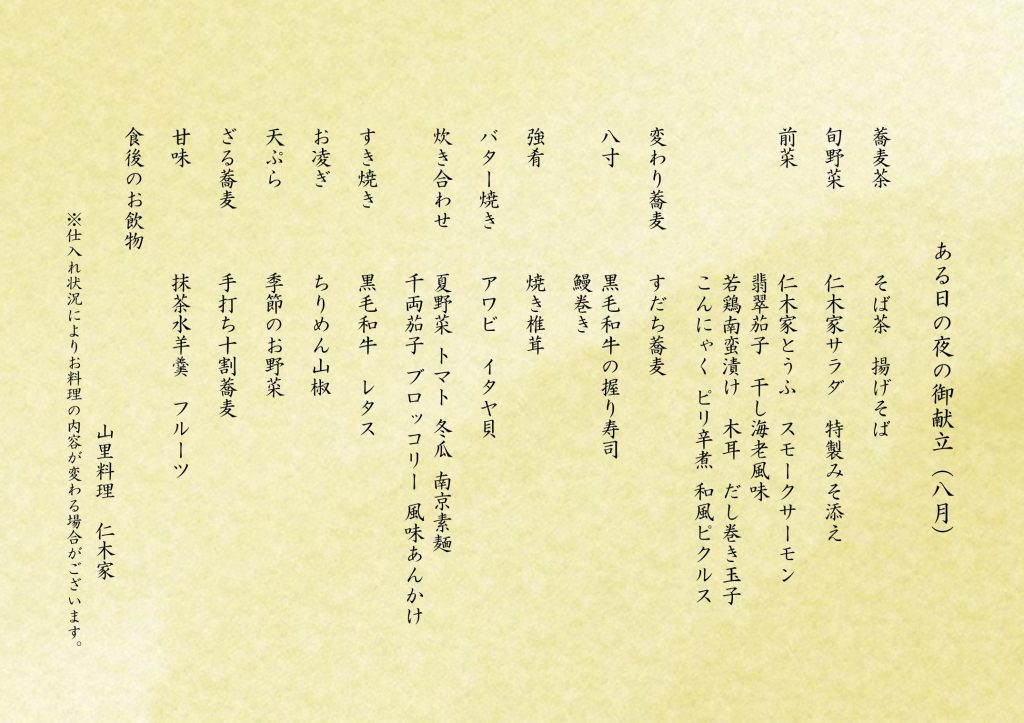 ある日の夜の御献立（八月）
蕎麦茶　そば茶　揚げそば
旬野菜　仁木家サラダ　特製みそ添え
前菜　仁木家とうふ　スモークサーモン
翡翠茄子　干し海老風味
若鶏南蛮漬け　木耳　だし巻き玉子
こんにゃく ピリ辛煮 和風ピクルス
変わり蕎麦　すだち蕎麦
八寸　黒毛和牛の握り寿司
鰻巻き
強肴　焼き椎茸
バター焼き　アワビ　イタヤ貝
炊き合わせ　夏野菜 トマト 冬瓜 南京素麺
千両茄子 ブロッコリー 風味あんかけ
すき焼き　黒毛和牛　レタス
お凌ぎ　ちりめん山椒
天ぷら　季節のお野菜
ざる蕎麦　手打ち十割蕎麦
甘味　抹茶水羊羹　フルーツ
食後のお飲物
山里料理　仁木家
※仕入れ状況によりお料理の内容が変わる場合がございます。